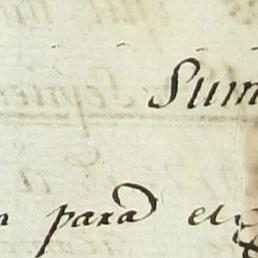 Sum
para el